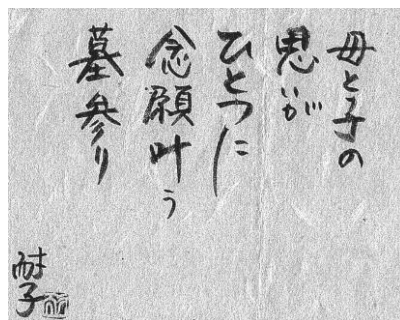 母と子の
思いが
ひとつに
念願叶う
墓参り
耐子